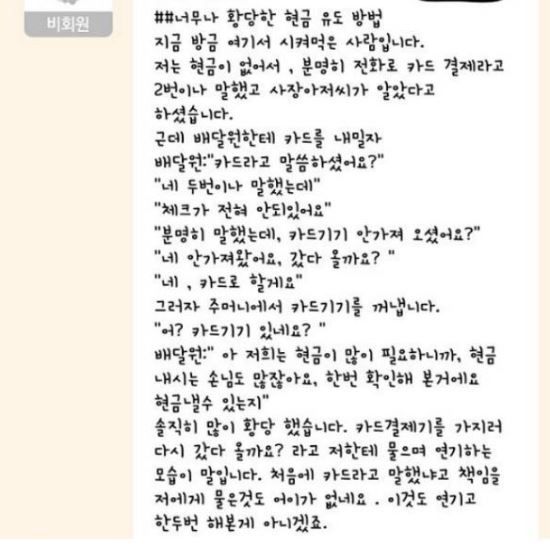 비회원
##너무나 황당한 현금 유도 방법
지금 방금 여기서 시켜먹은 사람입니다.
저는 현금이 없어서 , 분명히 전화로 카드 결제라고
2번이나 말했고 사장아저씨가 알았다고
하셨습니다.
근데 배달원한테 카드를 내밀자
배달원:"카드라고 말씀하셨어요?"
"네 두번이나 말했는데"
"체크가 전혀 안되있어요"
"분명히 말했는데, 카드기기 안가져 오셨어요?"
"네 안가져왔어요, 갔다 올까요? "
"네 , 카드로 할게요"
그러자 주머니에서 카드기기를 꺼냅니다.
"어? 카드기기 있네요? "
배달원:" 아 저희는 현금이 많이 필요하니까, 현금
내시는 손님도 많잖아요, 한번 확인해 본거에요
현금낼수 있는지"
솔직히 많이 황당 했습니다. 카드결제기를 가지러
다시 갔다 올까요? 라고 저한테 물으며 연기하는
모습이 말입니다. 처음에 카드라고 말했냐고 책임을
저에게 물은것도 어이가 없네요 . 이것도 연기고
한두번 해본게 아니겠죠.